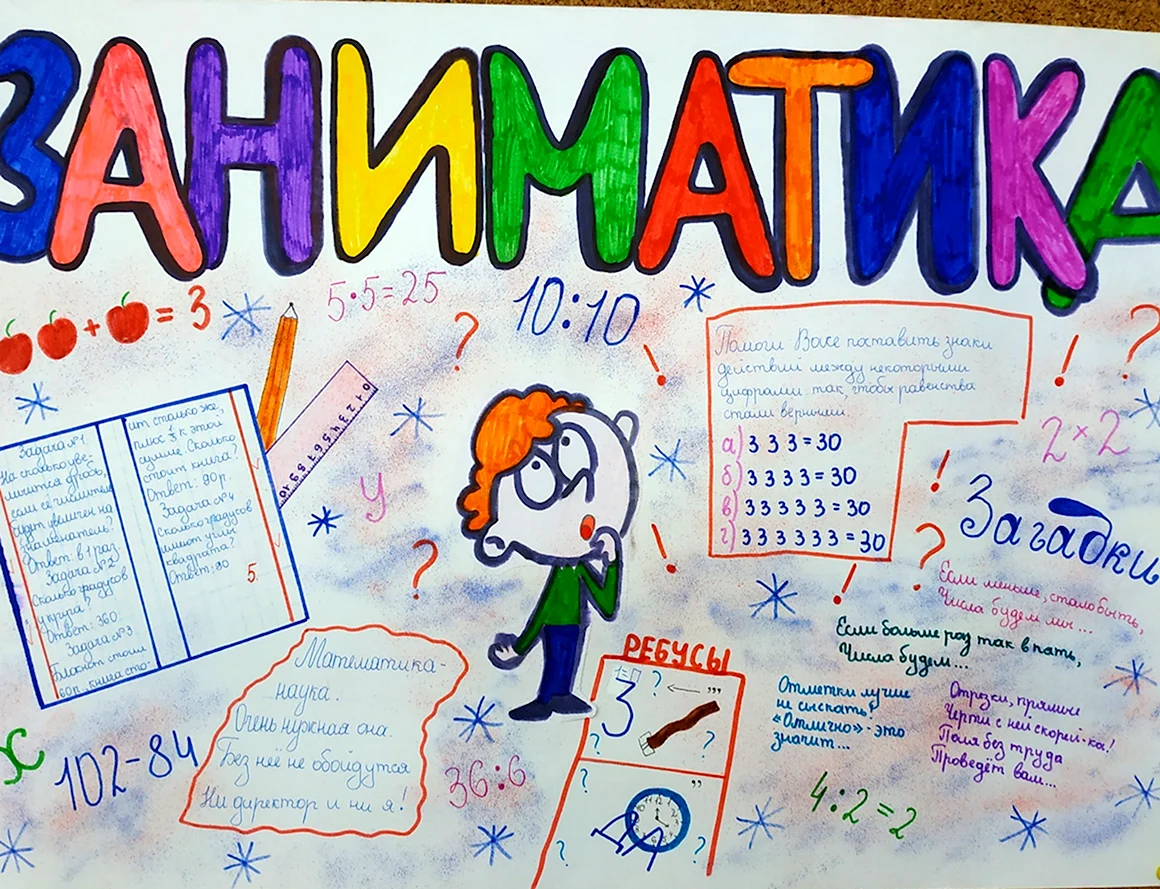 ЗАНИМАТИКА
+ = 3
5·5=25
10:10
Помоги Васе поставить знаки
действий между некоторыми
цифрами так, чтобы равенства
стали верными.
а) 3 3 3 = 30
б) 3 3 3 3 = 30
в) 3 3 3 3 3 = 30
г) 3 3 3 3 3 3 = 30
2×2
0 1 2 3 4 5 6 7 8 9 10
Задача №1.
На сколько уве-
личится дробь,
если её числитель
будет увеличен на
знаменатель?
Ответ: в 1 раз
Задача №2
Сколько градусов
у круга?
Ответ: 360.
Задача №3
Блокнот стоил
60р., книга сто-
ит столько же,
плюс к этой
сумме. Сколько
стоит книга?
Ответ: 90р.
Задача №4
Сколько градусов
имеют углы
квадрата?
Ответ: 90
5.
у
Загадки
Если меньше, стало быть,
Числа будем ми...
Если больше раз так в пять,
Числа будем...
Отметки лучше
не сыскать!
"Отлично" - это
значит...
Отрезки, прямые
Черти с ней скорей-ка!
Поля без труда
Проведёт вам...
Математика-
наука.
Очень нужная она.
Без неё не обойдутся
Ни директор и ни я!
х
102-84
36:6
РЕБУСЫ
3 ? ← ,,,
? ?
? ,,
? ?
4:2=2